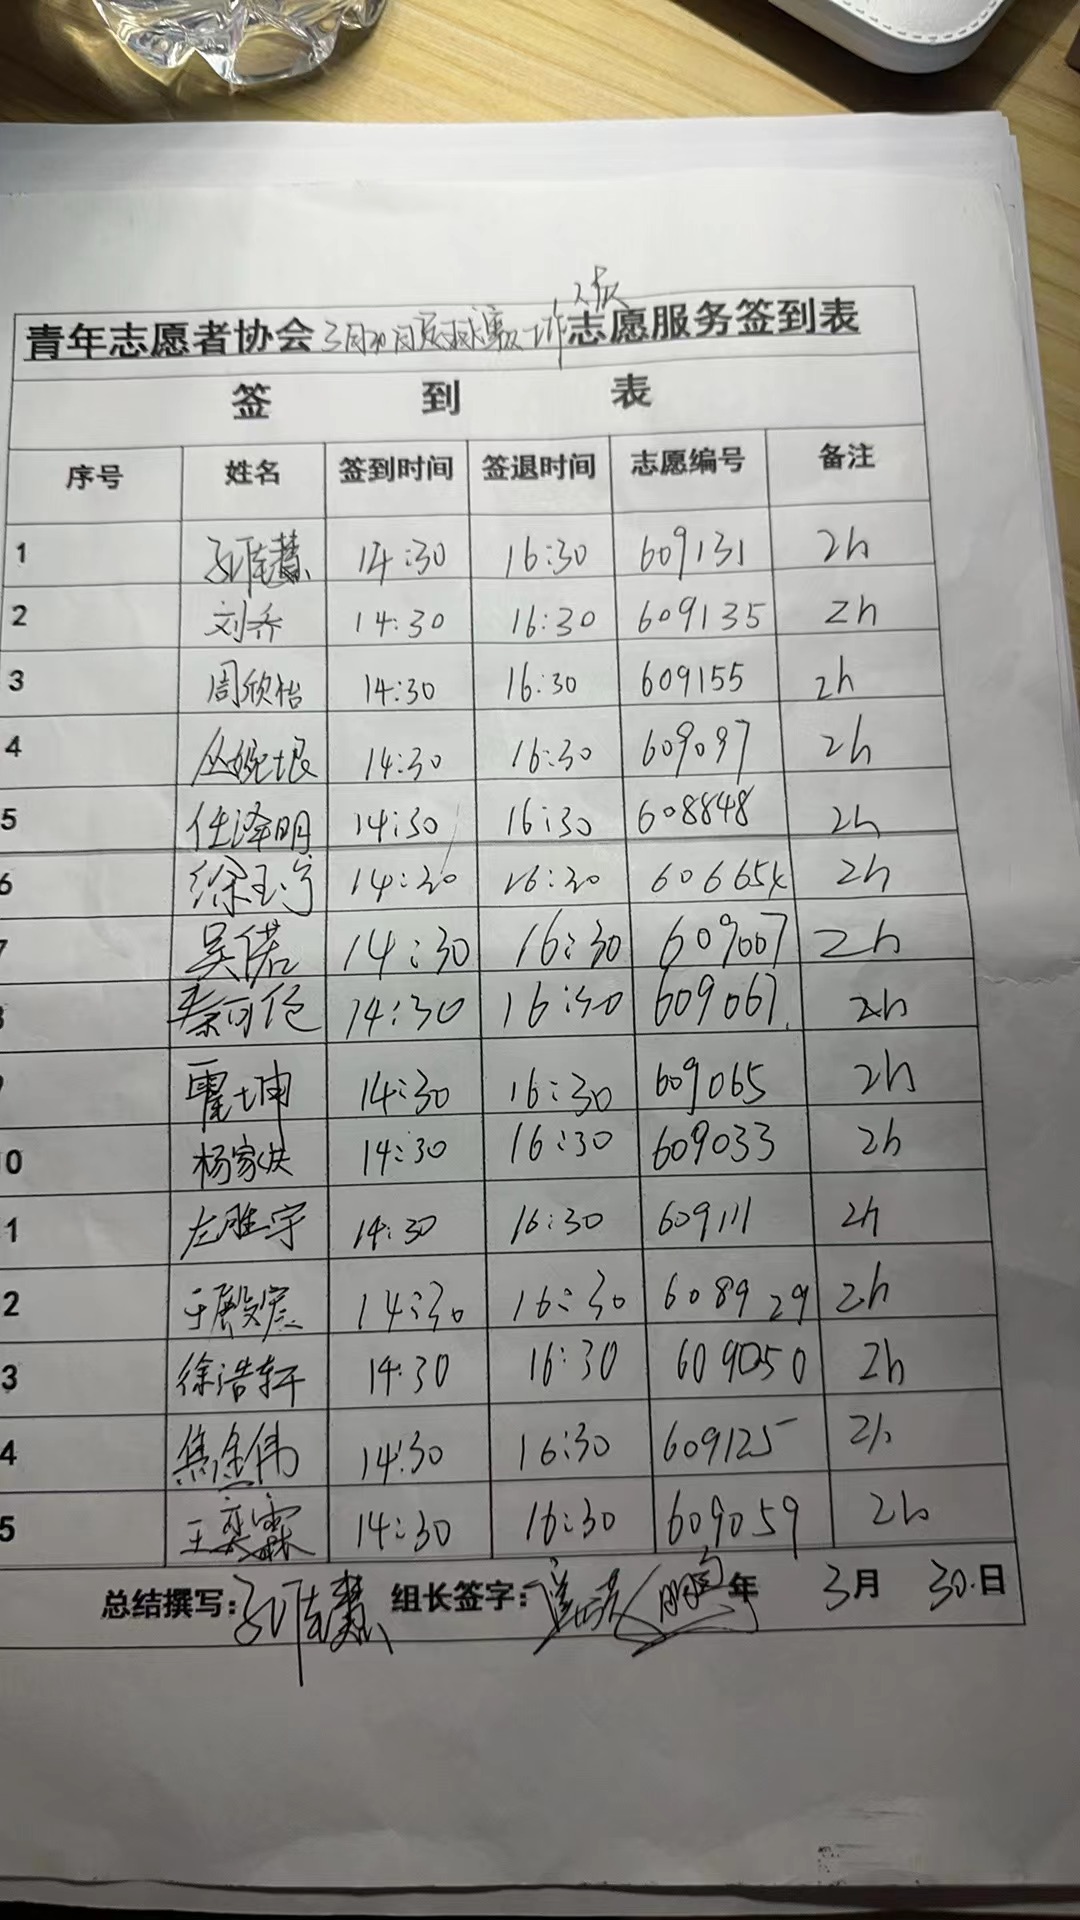 青年志愿者协会3月30日足球赛工作人员志愿服务签到表
签 到 表
序号 姓名 签到时间 签退时间 志愿编号 备注
1 14:30 16:30 609131 2h
2 刘乔 14:30 16:30 609135 2h
3 周欣怡 14:30 16:30 609155 2h
4 丛婉垠 14:30 16:30 609097 2h
5 任泽明 14:30 16:30 608848 2h
6 14:30 16:30 2h
7 吴偌 14:30 16:30 609007 2h
秦可 14:30 16:30 609067 2h
霍坤 14:30 16:30 609065 2h
0 杨家 14:30 16:30 609033 2h
1 左胜宇 14:30 16:30 609111 2h
2 于殿宾 14:30 16:30 608929 2h
3 徐浩轩 14:30 16:30 609050 2h
4 焦金伟 14:30 16:30 609125 2h
5 王奕霖 14:30 16:30 609059 2h
总结撰写: 组长签字: 年 3月 30日